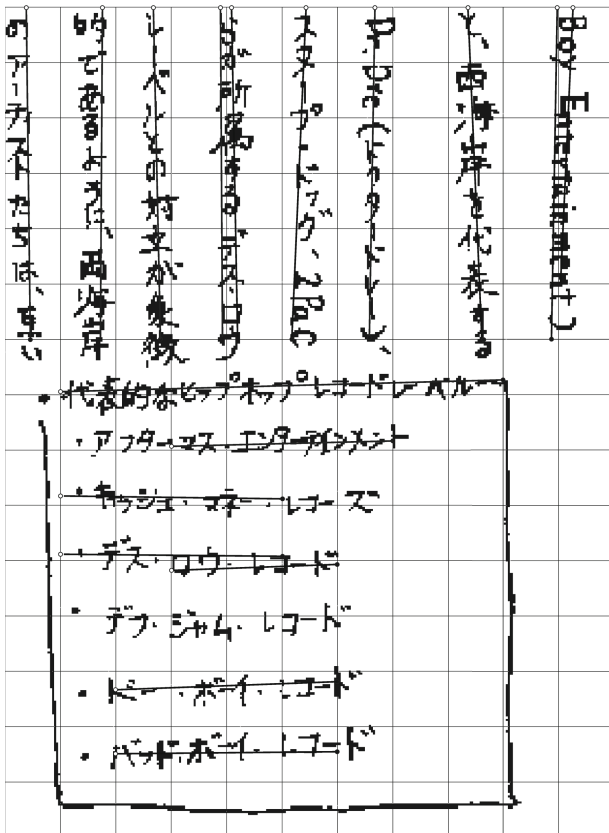 Boy Entertainment)
と、西海岸を代表する
Dr.Dre(ドクタードレー)、
スヌープ・ドッグ、2PaC
らが所属するデス・ロウ・
レーベルとの対立が象徴
的であるように、両海岸
のアーティストたちは、互い
・代表的なヒップホップレコードレーベル
・アフターマス・エンターテインメント
・キャッシュ・マネー・レコーズ
・デス・ロウ・レコード
・デフ・ジャム・レコード
・ベー・ボイ・レコード
・バッド・ボーイ・レコード